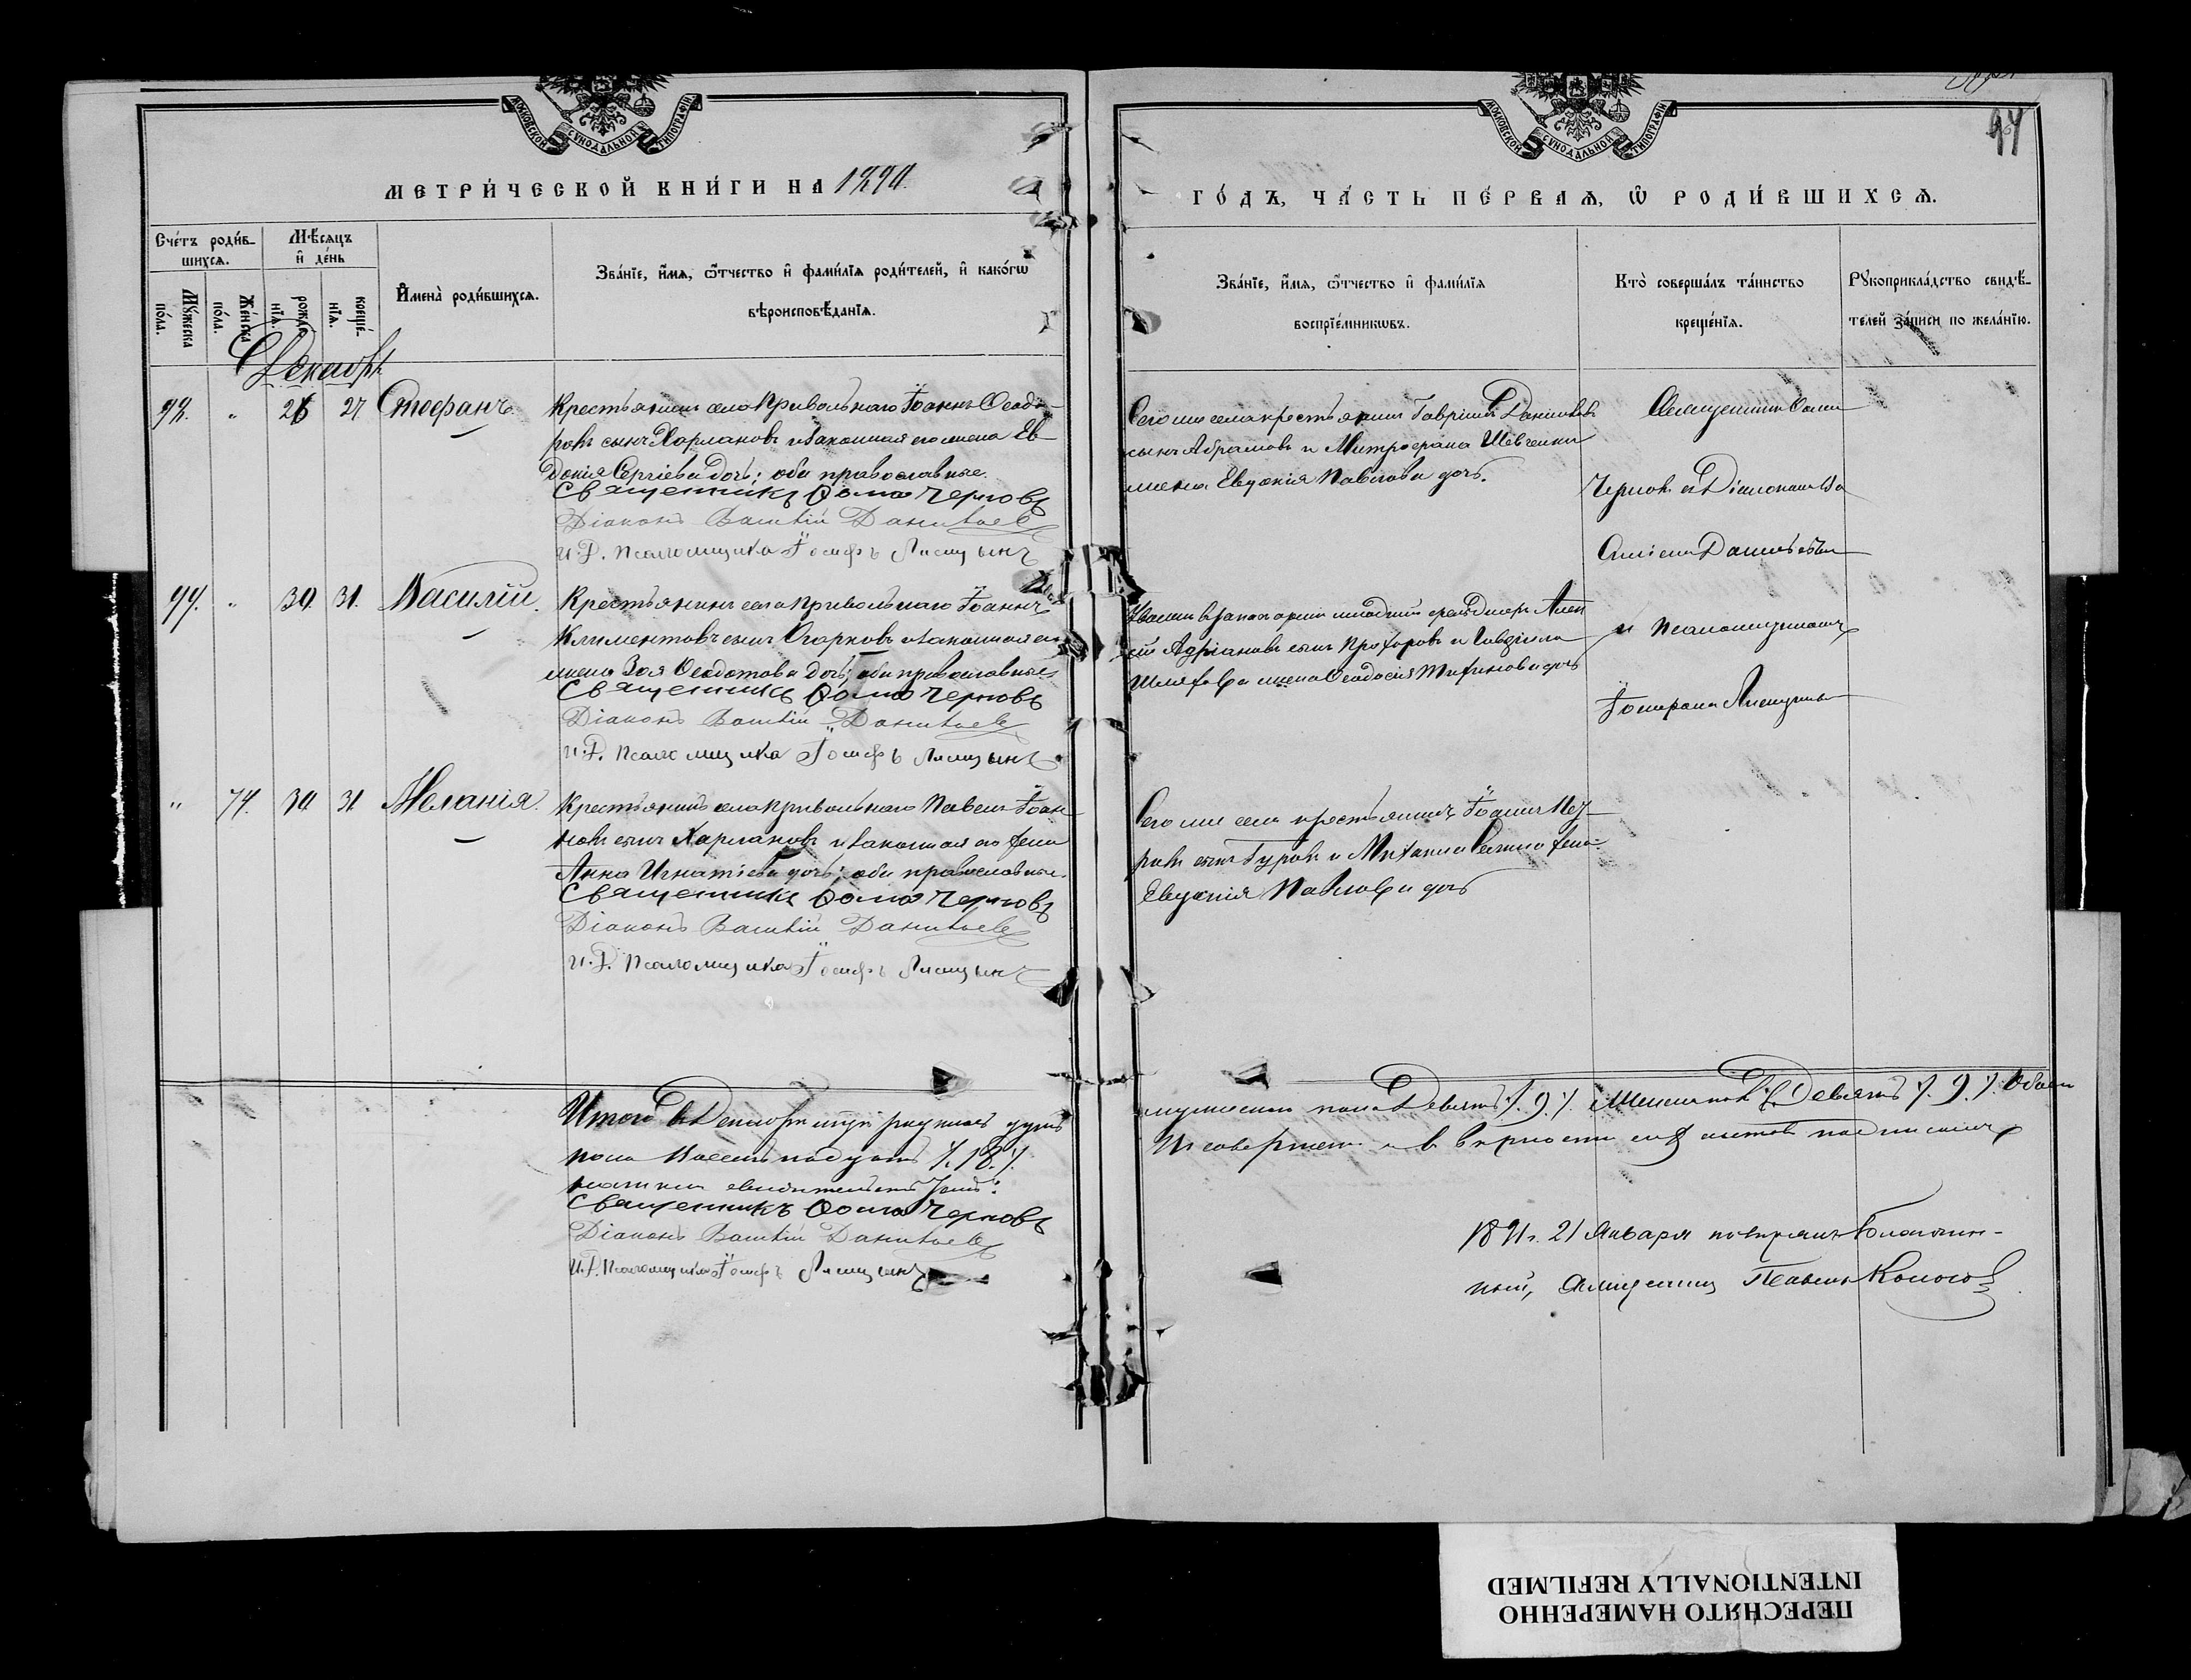 МОСКОВСКОЙ СѴНОДАЛЬНОЙ ТИПОГРАФІИ
МЕТРИ́ЧЕСКОЙ КНИ́ГИ НА 1890.
Сче́тъ роди́в-
шихсѧ.
Мꙋ́жеска
по́ла.
Же́нска
по́ла.
Мѣ́сѧцъ
и҆ де́нь
рожде́-
нїѧ.
креще́-
нїѧ.
И҆мена̀ роди́вшихсѧ.
Зва́нїе, и҆́мѧ, ѻ҆́тчество и҆ фами́лїѧ роди́телей, и҆ како́гѡ
вѣроисповѣ́данїѧ.
Декабрь
98. " 26 27 Стефанъ.
Крестьянинъ села Привольнаго Іоаннъ Ѳеодо-
ровъ сынъ Харламовъ и законная его жена Ев-
докія Сергіева дочь; оба православные.
Священникъ Ѳома Черновъ
Діаконъ Василій Данильевъ
И.Д. Псаломщика Іосифъ Лисицынъ
99. " 30 31. Василій.
Крестьянинъ села Привольнаго Іоаннъ
Климентовъ сынъ Огарковъ и законная его
жена Зоя Ѳеодотова дочь; оба православные
Священникъ Ѳома Черновъ
Діаконъ Василій Данильевъ
И.Д. Псаломщика Іосифъ Лисицынъ
" 74. 30 31 Меланія.
Крестьянинъ села Привольнаго Павелъ Іоан-
новъ сынъ Харламовъ и законная его жена
Анна Игнатіева дочь; оба православные.
Священникъ Ѳома Черновъ
Діаконъ Василій Данильевъ
И.Д. Псаломщика Іосифъ Лисицынъ
Итого въ Декабрѣ родилось душъ
пола Восемьнадцать /.18./.
Священникъ Ѳома Черновъ
Діаконъ Василій Данильевъ
И.Д. Псаломщика Іосифъ Лисицынъ
МОСКОВСКОЙ СѴНОДАЛЬНОЙ ТИПОГРАФІИ
94
ГО́ДЪ, ЧА́СТЬ ПЕ́РВАѦ, Ѡ҆ РОДИ́ВШИХСѦ.
Зва́нїе, и҆́мѧ, ѻ҆́тчество и҆ фами́лїѧ
воспрїе́мникѡвъ.
Кто̀ соверша́лъ та́инство
креще́нїѧ.
Рꙋкоприкла́дство свидѣ́-
телей за́писи по жела́нїю.
Сего же села крестьянинъ Гавріилъ Даниловъ
сынъ Абрамовъ и Митрофана Шевченки
жена Евдокія Павлова дочь.
Священникъ Ѳома
Черновъ съ Діакономъ Ва
силіемъ Данильевымъ
и Псаломщикомъ
Іосифомъ Лисицынымъ
младшій Алек
сѣй Адріановъ сынъ Прохоровъ и Гавріила
жена Ѳеодосія дочь
Сего же села крестьянинъ Іоаннъ Пет-
ровъ сынъ Гуровъ и жена
Евдокія Павлова дочь
мужеска пола Девять /.9./. Женска Девять /.9./. Обоего
1891 г. 21 Января повѣрялъ Благочин-
ный, Священникъ Павелъ
ПЕРЕСНЯТО НАМЕРЕННО
INTENTIONALLY REFILMED